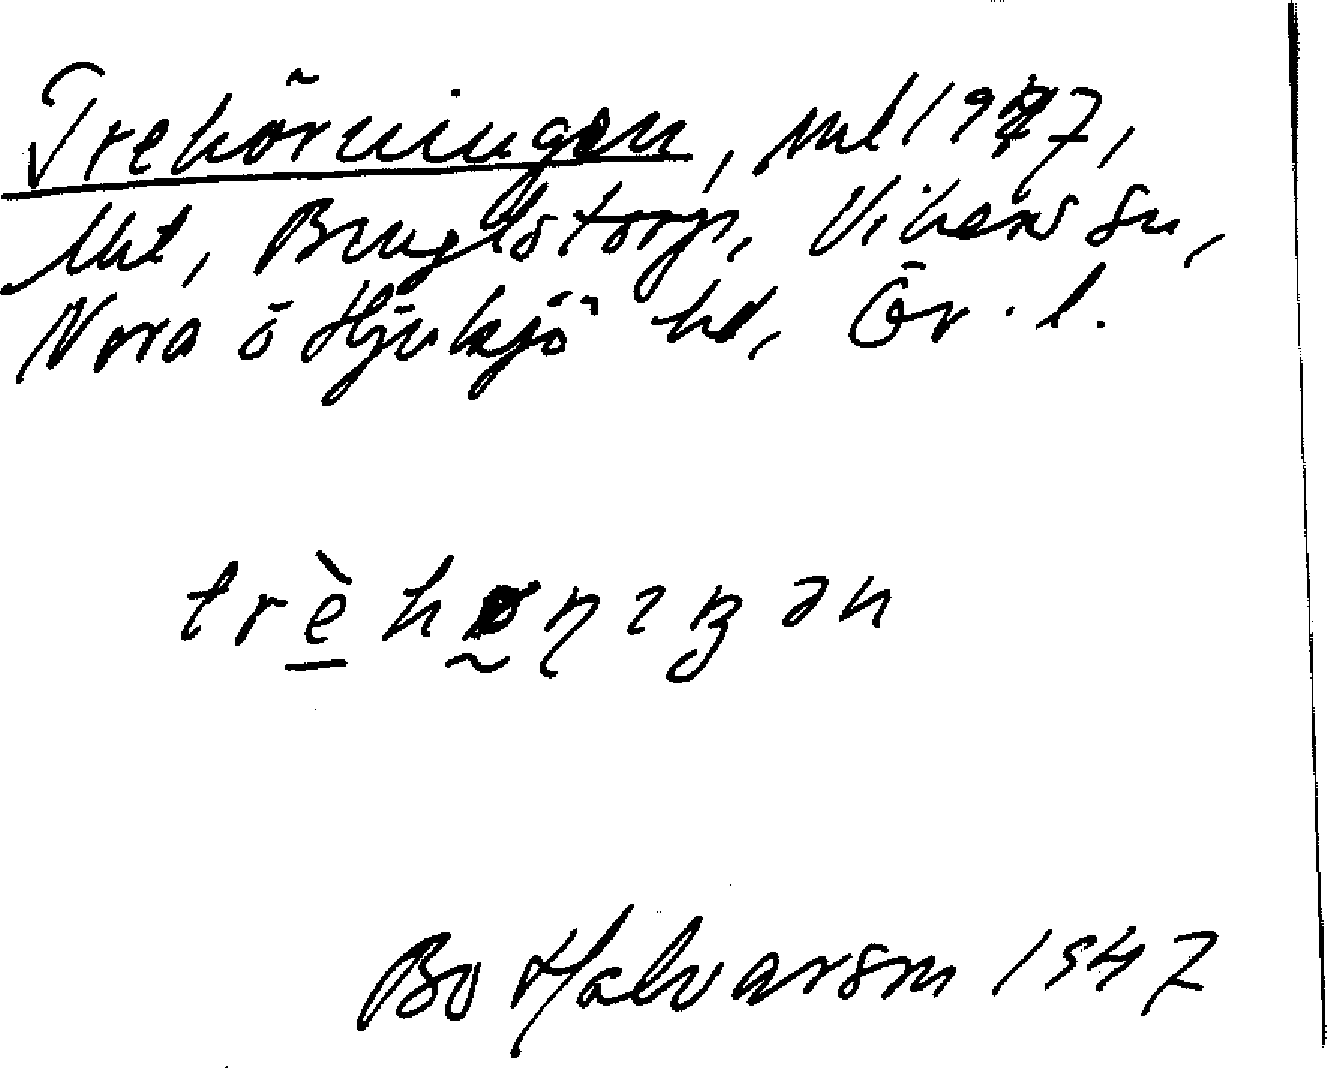 Trehörningen, ml 1947,
Utt, Bengtstorp, Vikers sn,
Nora o Hjulsjö hd, Ör. l.
trèhøṇɪŋən
Bo Halvarson 1947